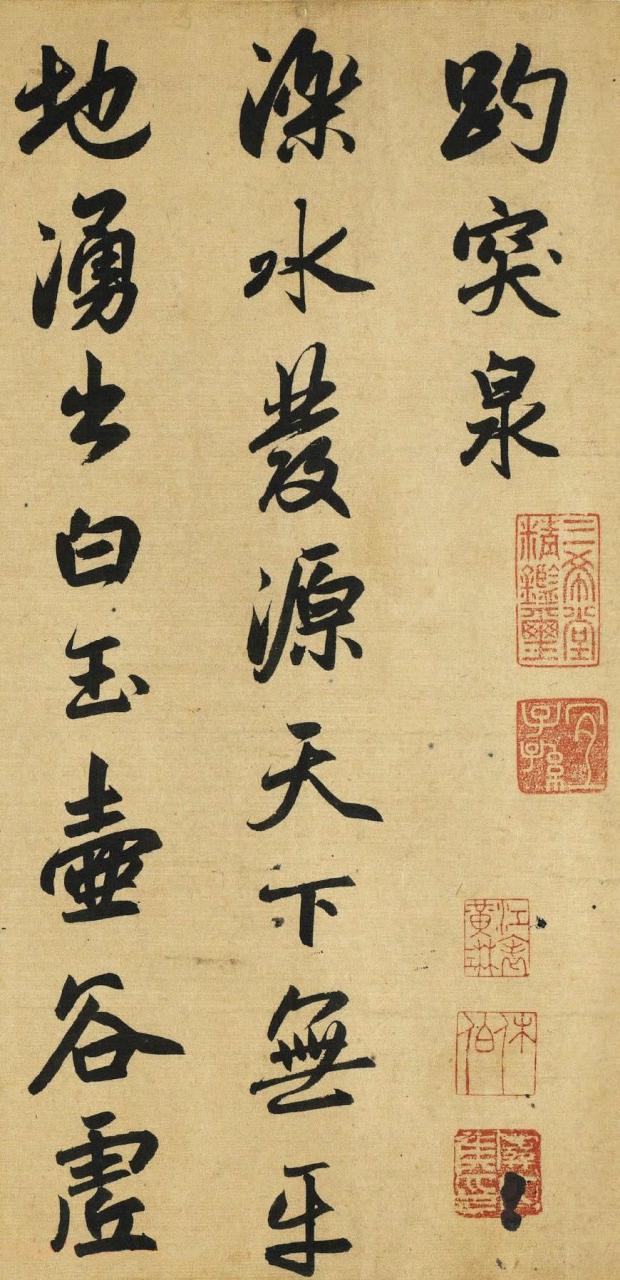 趵突泉
濼水發源天下無平
地湧出白玉壺谷虛
三希堂精鑑璽
宜子孫
休伯